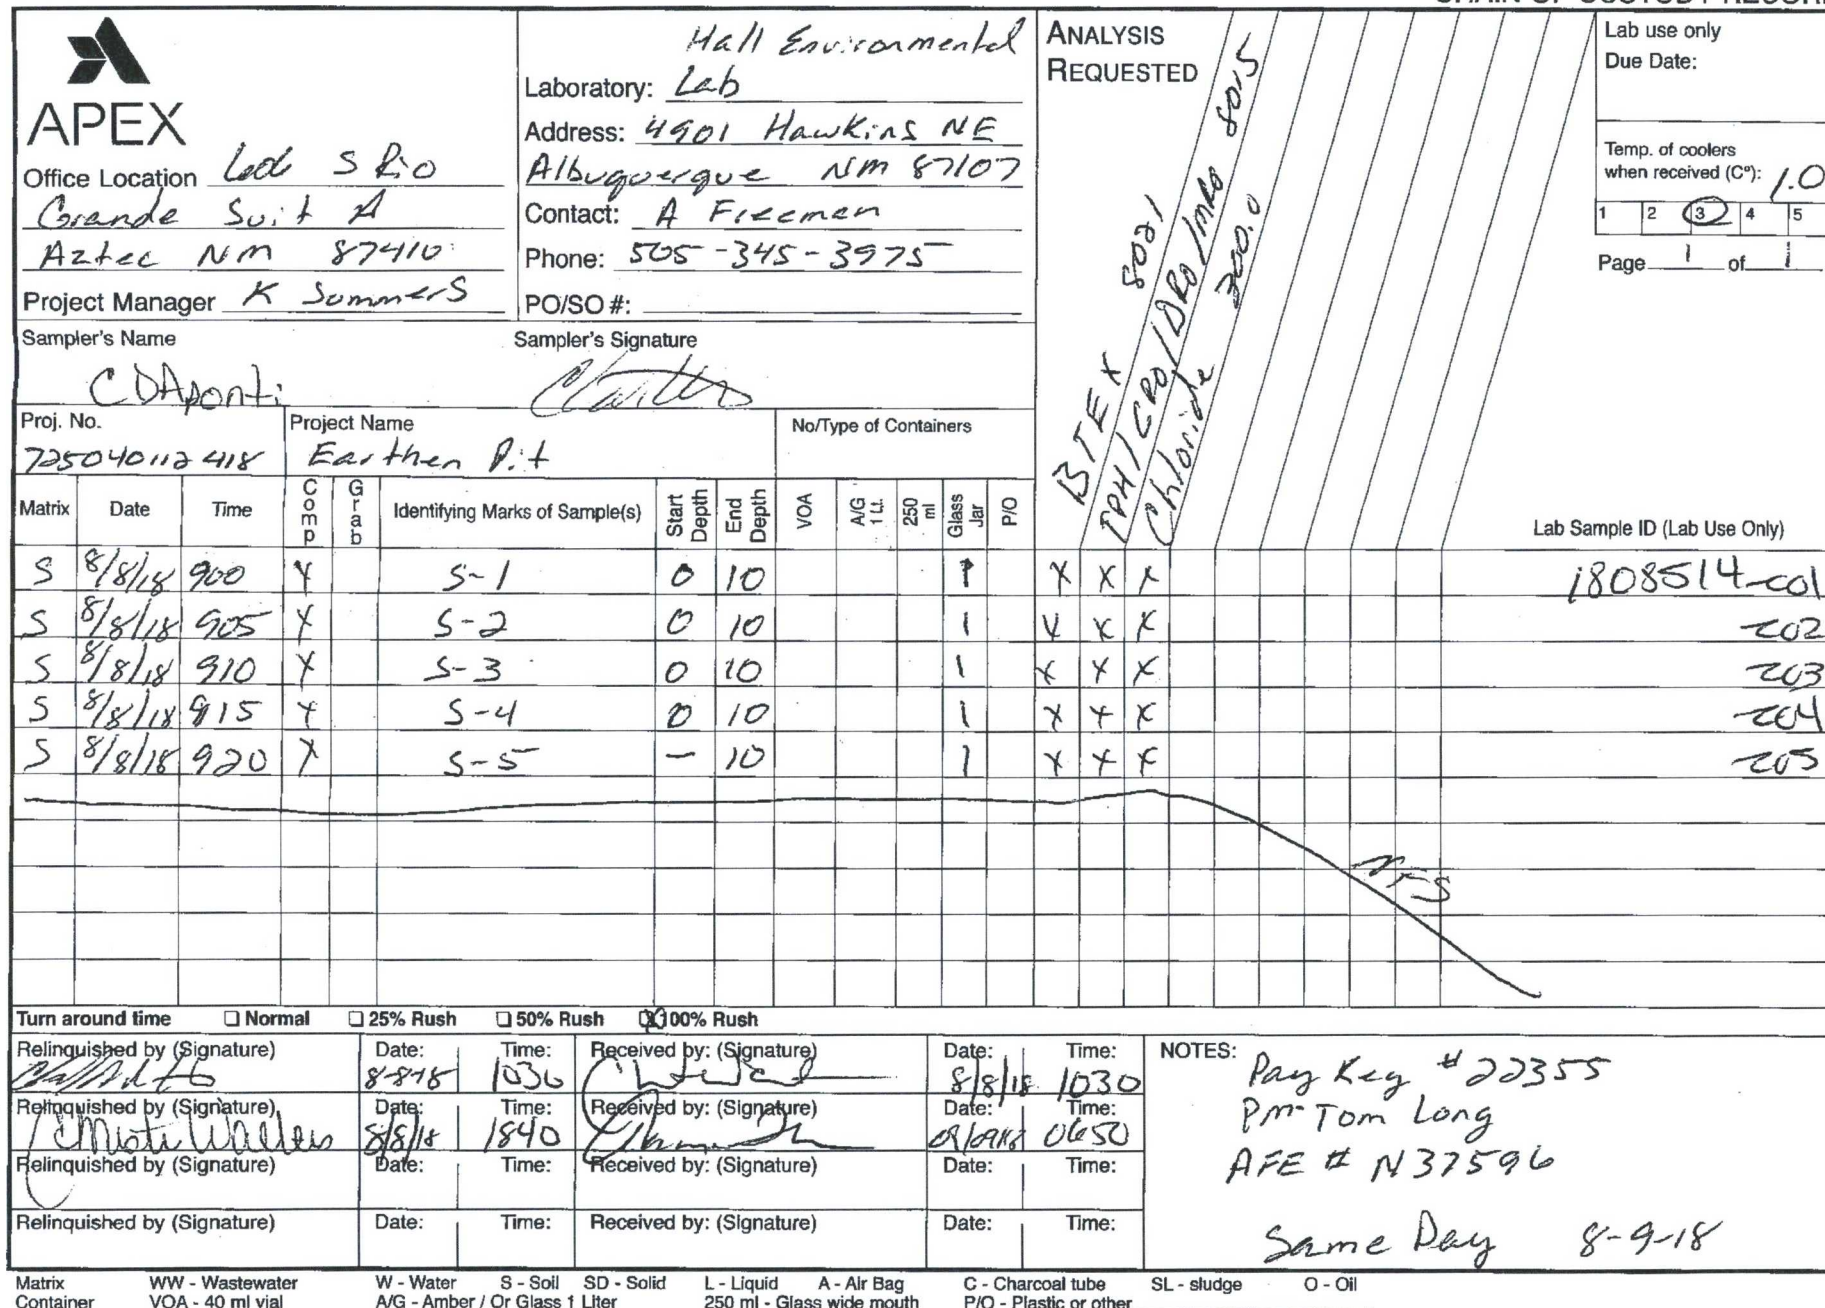 APEX
Office Location 606 S Rio
Grande Suit A
Aztec NM 87410
Project Manager K Summers
Hall Environmental
Laboratory: Lab
Address: 4901 Hawkins NE
Albuquerque NM 87107
Contact: A Freeman
Phone: 505-345-3975
PO/SO #:
ANALYSIS
REQUESTED
BTEX 8021
TPH/GRO/DRO/MRO 8015
Chloride 300.0
Lab use only
Due Date:
Temp. of coolers
when received (C°): 1.0
1 2 3 4 5
Page 1 of 1
Sampler's Name
Sampler's Signature
CDAponti
Proj. No.
Project Name
No/Type of Containers
725040112418
Earthen Pit
Matrix Date Time Comp Grab Identifying Marks of Sample(s) Start Depth End Depth VOA A/G 1 Lt. 250 ml Glass Jar P/O Lab Sample ID (Lab Use Only)
S 8/8/18 900 X S-1 0 10 1 X X X 1808514-001
S 8/8/18 905 X S-2 0 10 1 X X X -002
S 8/8/18 910 X S-3 0 10 1 X X X -003
S 8/8/18 915 X S-4 0 10 1 X X X -004
S 8/8/18 920 X S-5 - 10 1 X X X -005
Turn around time Normal 25% Rush 50% Rush X 100% Rush
Relinquished by (Signature) Date: Time: Received by: (Signature) Date: Time:
8-8-18 1030 8/8/18 1030
Relinquished by (Signature) Date: Time: Received by: (Signature) Date: Time:
8/8/18 1840 0650
Relinquished by (Signature) Date: Time: Received by: (Signature) Date: Time:
Relinquished by (Signature) Date: Time: Received by: (Signature) Date: Time:
NOTES: Pay Key #22355
PM-Tom Long
AFE # N37596
Same Day 8-9-18
Matrix WW - Wastewater W - Water S - Soil SD - Solid L - Liquid A - Air Bag C - Charcoal tube SL - sludge O - Oil
Container VOA - 40 ml vial A/G - Amber / Or Glass 1 Liter 250 ml - Glass wide mouth P/O - Plastic or other